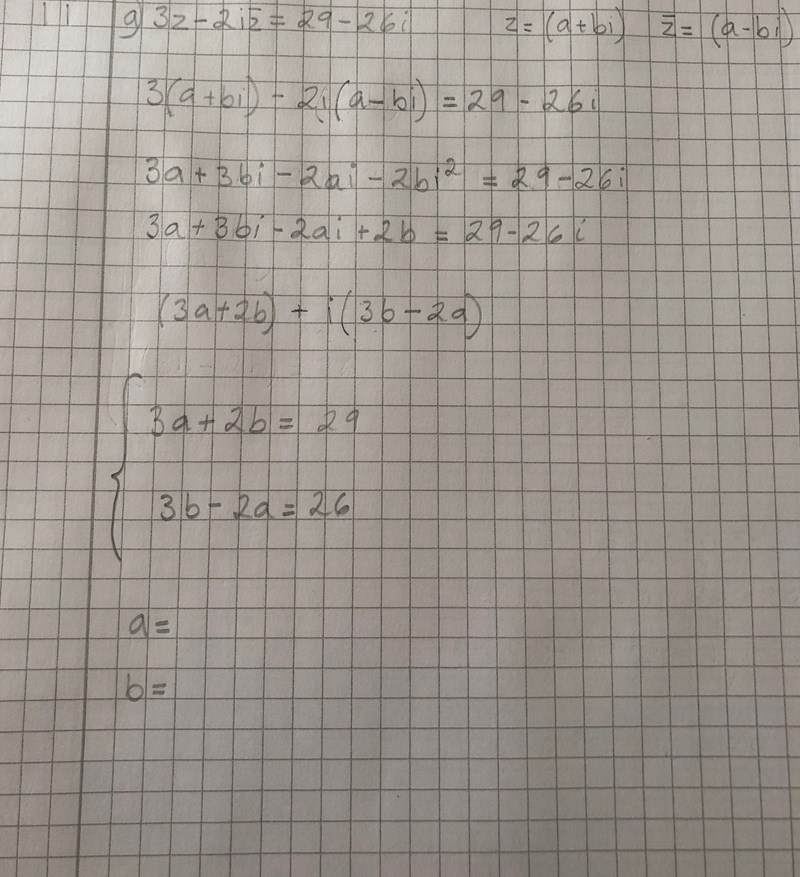 11 g) 3z - 2iz̅ = 29 - 26i z = (a+bi) z̅ = (a-bi)
3(a+bi) - 2i(a-bi) = 29 - 26i
3a + 3bi - 2ai - 2bi² = 29 - 26i
3a + 3bi - 2ai + 2b = 29 - 26i
(3a+2b) + i(3b-2a)
3a + 2b = 29
3b - 2a = 26
a =
b =